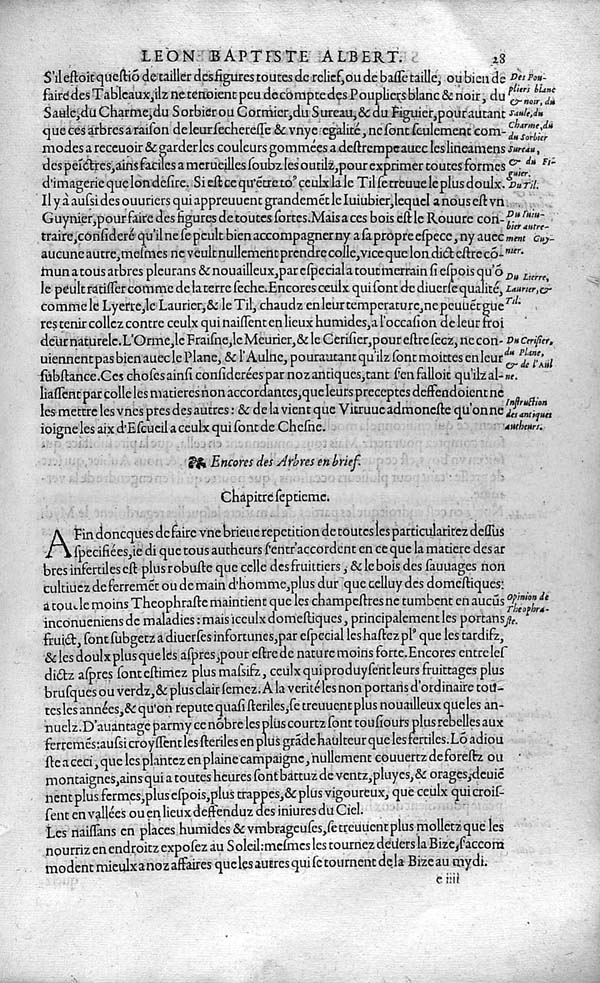 LEON BAPTISTE ALBERT. 28
S'il estoit questiõ de tailler des figures toutes de relief, ou de basse taille, ou bien de
faire des Tableaux, ilz ne tenoient peu de compte des Poupliers blanc & noir, du
Saule, du Charme, du Sorbier ou Cormier, du Sureau, & du Figuier, pour autant
que ces arbres a raison de leur secheresse & vnye egalité, ne sont seulement com-
modes a receuoir & garder les couleurs gommées a destrempe auec les lineamens
des peictres, ains faciles a merueilles soubz les outilz, pour exprimer toutes formes
d'imagerie que lon desire. Si est ce qu'ētre to⁹ ceulx la le Til se treuue le plus doulx.
Il y à aussi des ouuriers qui appreuuent grandemēt le Iuiubier, lequel a nous est vn
Guynier, pour faire des figures de toutes sortes. Mais a ces bois est le Rouure con-
traire, consideré qu'il ne se peult bien accompagner ny a sa propre espece, ny auec
aucune autre, mesmes ne veult nullement prendre colle, vice que lon dict estre cõ-
mun a tous arbres pleurans & nouailleux, par especial a tout merrain si espois qu'õ
le peult ratisser comme de la terre seche. Encores ceulx qui sont de diuerse qualité,
comme le Lyerre, le Laurier, & le Til, chaudz en leur temperature, ne peuuēt gue
res tenir collez contre ceulx qui naissent en lieux humides, a l'occasion de leur froi
deur naturele. L'Orme, le Fraisne, le Meurier, & le Cerisier, pour estre secz, ne con-
uiennent pas bien auec le Plane, & l'Aulne, pourautant qu'ilz sont moittes en leur
substance. Ces choses ainsi considerées par noz antiques, tant s'en falloit qu'ilz al-
liassent par colle les matieres non accordantes, que leurs preceptes deffendoient ne
les mettre les vnes pres des autres: & de la vient que Vitruue admoneste qu'on ne
ioigne les aix d'Escueil a ceulx qui sont de Chesne.
Des Pou-
pliers blanc
& noir, du
Saule, du
Charme, du
du Sorbier
Sureau,
& du Fi-
guier.
Du Til.
Du Iuiu-
bier autre-
ment Guy-
nier.
Du Lierre,
Laurier, &
Til.
Du Cerisier,
du Plane,
& de l'Aul
ne.
Instruction
des antiques
autheurs.
Encores des Arbres en brief.
Chapitre septieme.
AFin doncques de faire vne brieue repetition de toutes les particularitez dessus
specifiées, ie di que tous autheurs s'entr'accordent en ce que la matiere des ar
bres infertiles est plus robuste que celle des fruittiers, & le bois des sauuages non
cultiuez de ferremēt ou de main d'homme, plus dur que celluy des domestiques:
a tout le moins Theophraste maintient que les champestres ne tumbent en aucũs
inconueniens de maladies: mais iceulx domestiques, principalement les portans
fruict, sont subgetz a diuerses infortunes, par especial les hastez pl⁹ que les tardifz,
& les doulx plus que les aspres, pour estre de nature moins forte. Encores entre les
dictz aspres sont estimez plus massifz, ceulx qui produysent leurs fruittages plus
brusques ou verdz, & plus clair semez. A la verité les non portans d'ordinaire tou-
tes les années, & qu'on repute quasi steriles, se treuuent plus nouailleux que les an-
nuelz. D'auantage parmy ce nõbre les plus courtz sont tousiours plus rebelles aux
ferremēs: aussi croyssent les steriles en plus grãde haulteur que les fertiles. Lõ adiou
ste a ceci, que les plantez en plaine campaigne, nullement couuertz de forestz ou
montaignes, ains qui a toutes heures sont battuz de ventz, pluyes, & orages, deuiē
nent plus fermes, plus espois, plus trappes, & plus vigoureux, que ceulx qui crois-
sent en vallées ou en lieux deffenduz des iniures du Ciel.
Les naissans en places humides & vmbrageuses, se treuuent plus molletz que les
nourriz en endroitz exposez au Soleil: mesmes les tournez deuers la Bize, s'accom
modent mieulx a noz affaires que les autres qui se tournent de la Bize au mydi.
Opinion de
Theophra-
ste.
e iiii